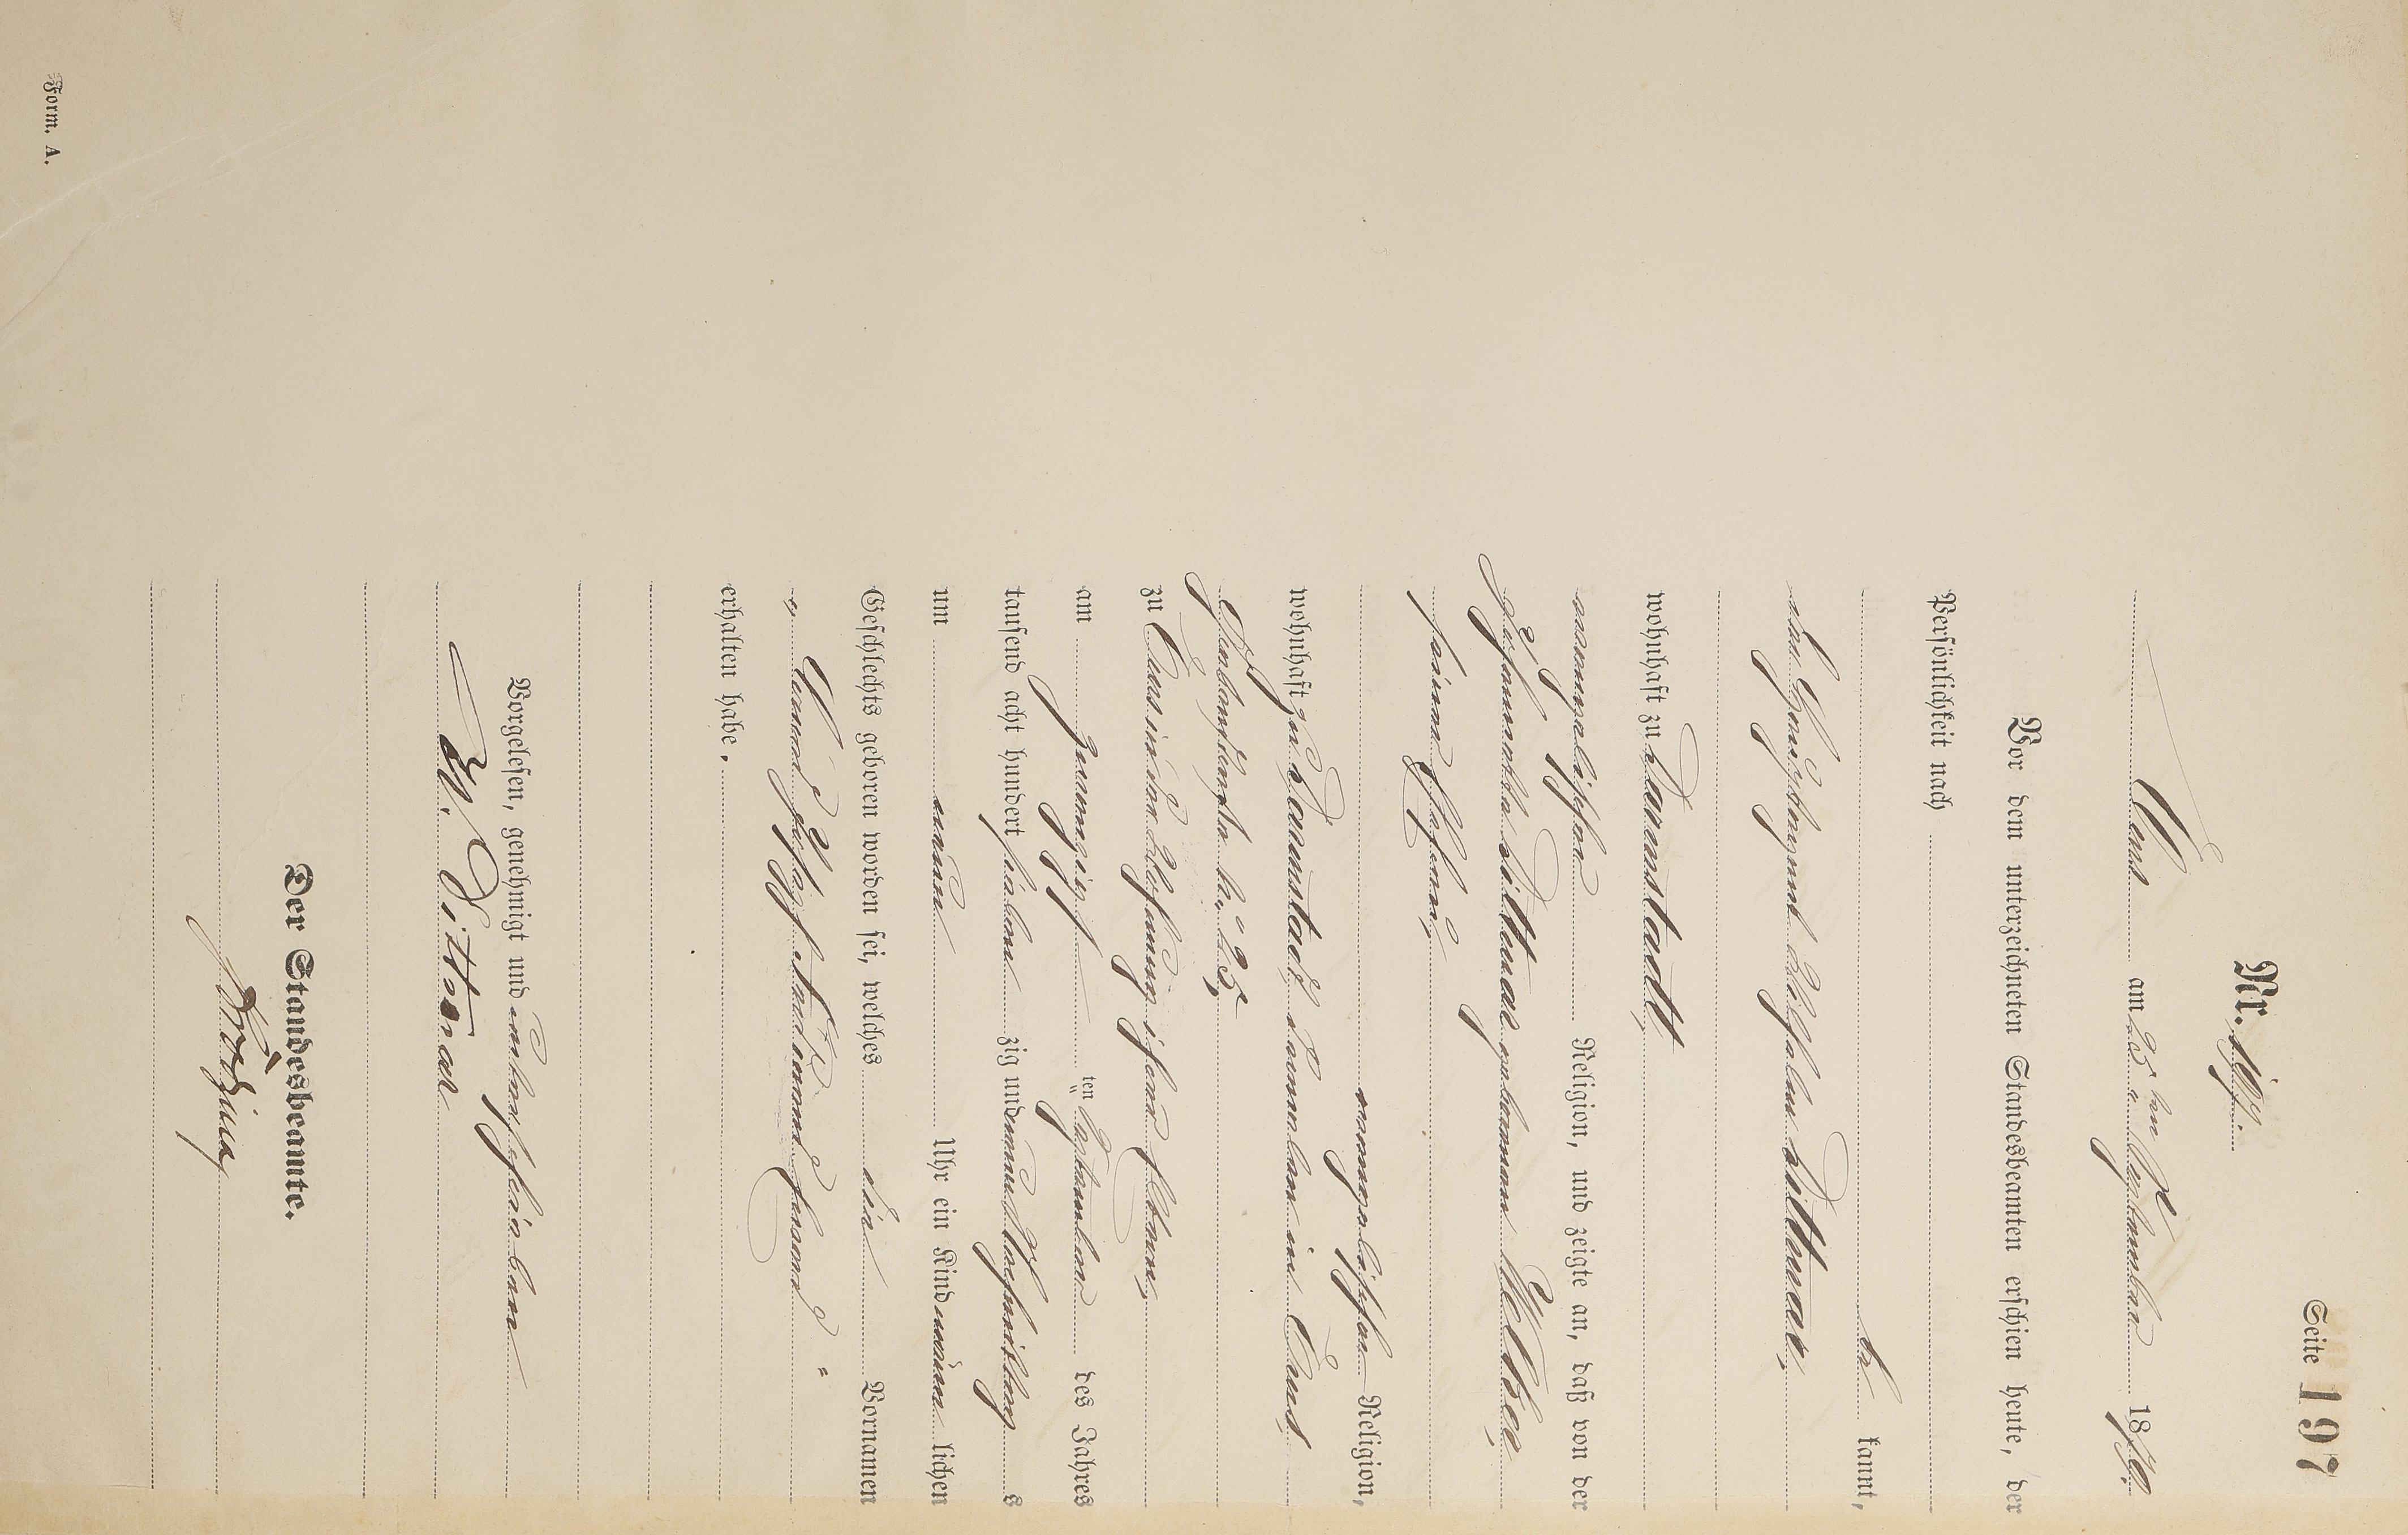 Seite 197
Nr. 197.
Ems am 25ten September 1879.
Vor dem unterzeichneten Standesbeamten erschien heute, der
Persönlichkeit nach
be kannt,
der Wilhelm Dittmar,
wohnhaft zu Darmstadt,
evangelischer Religion, und zeigte an, daß von der
Dittmar geborenen
seiner Ehefrau,
evangelischer Religion,
wohnhaft zu Darmstadt, in Ems,
zu Ems in der Wohnung ihrer Eltern,
am zwanzigsten September des Jahres
tausend acht hundert sieben zig und neun Nachmittags
um neun Uhr ein Kind männlichen
Geschlechts geboren worden sei, welches die Vornamen
erhalten habe.
Vorgelesen, genehmigt und unterschrieben
W. Dittmar
Der Standesbeamte.
Form. A.